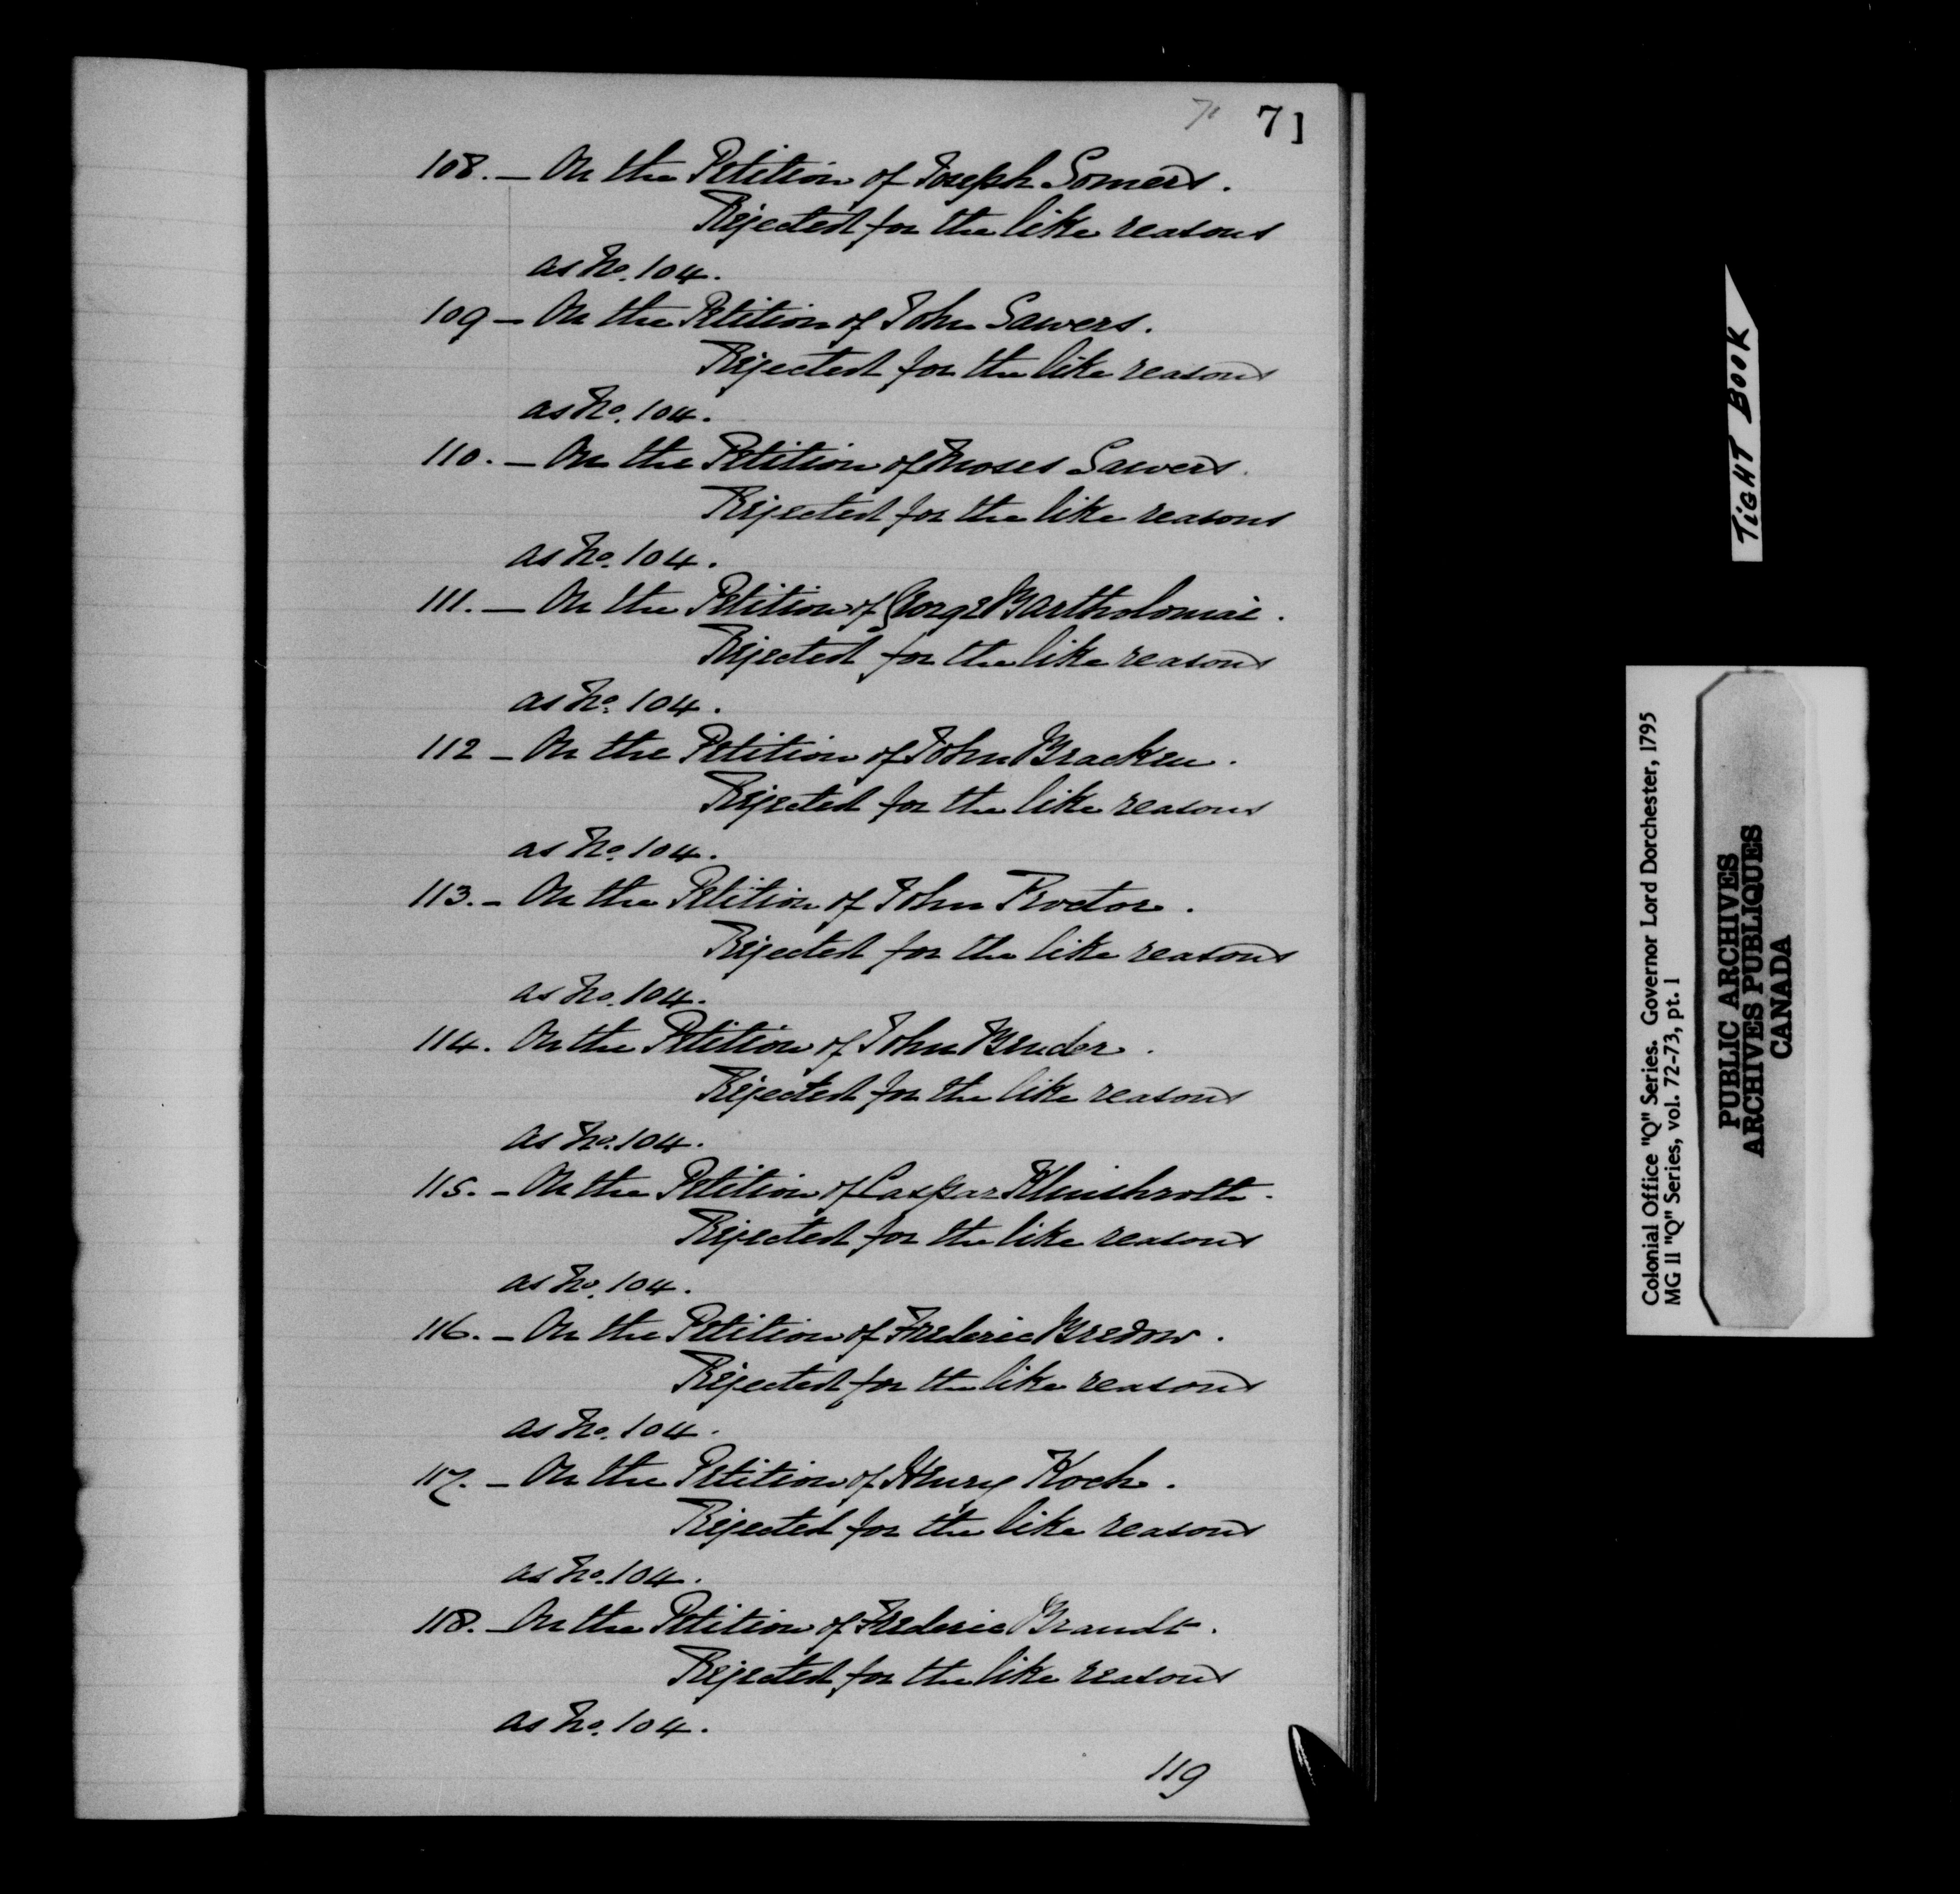 71 71
108. — On the Petition of Joseph Somers.
Rejected for the like reasons
as No. 104.
109 — On the Petition of John Sawers.
Rejected for the like reasons
as No. 104.
110. — On the Petition of Moses Sawers.
Rejected for the like reasons
as No. 104.
111. — On the Petition of George Bartholomai.
Rejected for the like reasons
as No. 104.
112 — On the Petition of John Bracken.
Rejected for the like reasons
as No. 104.
113. — On the Petition of John Proctor.
Rejected for the like reasons
as No. 104.
114. On the Petition of John Bender.
Rejected for the like reasons
as No. 104.
115. — On the Petition of Caspar
Rejected for the like reasons
as No. 104.
116. — On the Petition of Frederic Bredow.
Rejected for the like reasons
as No. 104.
117. — On the Petition of Henry Koch.
Rejected for the like reasons
as No. 104.
118. — On the Petition of Frederic Brandt.
Rejected for the like reasons
as No. 104.
119
TIGHT BOOK
Colonial Office "Q" Series. Governor Lord Dorchester, 1795
MG 11 "Q" Series, vol. 72-73, pt. 1
PUBLIC ARCHIVES
ARCHIVES PUBLIQUES
CANADA